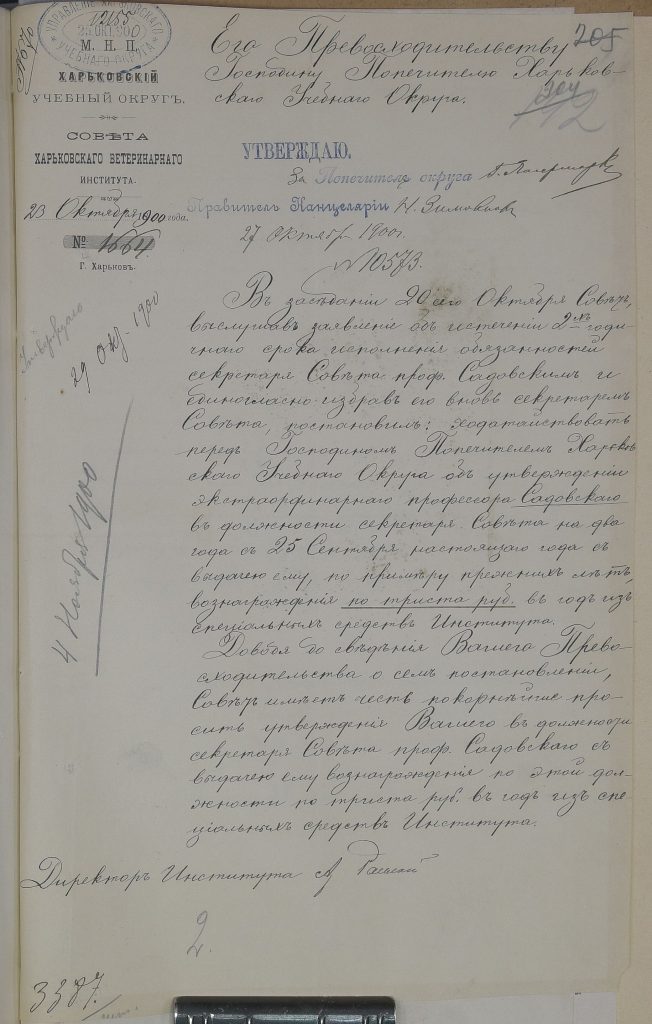 УПРАВЛЕНІЕ ХАРЬКОВСКАГО
12155
25 ОКТ. 900
УЧЕБНАГО ОКРУГА
М. Н. П.
ХАРЬКОВСКІЙ
УЧЕБНЫЙ ОКРУГЪ.
СОВѢТА
ХАРЬКОВСКАГО ВЕТЕРИНАРНАГО
ИНСТИТУТА.
23 Октября 1900 года.
№ 1664
Г. Харьковъ.
205
Его Превосходительству
Господину Попечителю Харьков-
скаго Учебнаго Округа.
УТВЕРЖДАЮ.
За Попечителя округа
Правитель Канцеляріи Н. Зимовновъ
27 Октября 1900 г.
№ 10573.
29 Окт. 1900
4 Ноября 1900
Въ засѣданіи 20 сего Октября Совѣтъ,
выслушавъ заявленіе объ истеченіи 2хъ годи-
чнаго срока исполненія обязанностей
секретаря Совѣта проф. Садовскимъ и
единогласно избравъ его вновь секретаремъ
Совѣта, постановилъ: ходатайствовать
передъ Господиномъ Попечителемъ Харьков
скаго Учебнаго Округа объ утвержденіи
экстраординарнаго профессора Садовскаго
въ должности секретаря Совѣта на два
года съ 25 Сентября настоящаго года съ
выдачею ему, по примѣру прежнихъ лѣтъ,
вознагражденія по триста руб. въ годъ изъ
спеціальныхъ средствъ Института.
Доводя до свѣдѣнія Вашего Прево-
сходительства о семъ постановленіи,
Совѣтъ имѣетъ честь покорнѣйше про-
сить утвержденія Вашего въ должности
секретаря Совѣта проф. Садовскаго съ
выдачею ему вознагражденія по этой дол-
жности по триста руб. въ годъ изъ спе
ціальныхъ средствъ Института.
Директоръ Института А Раевскій
2.
3387.